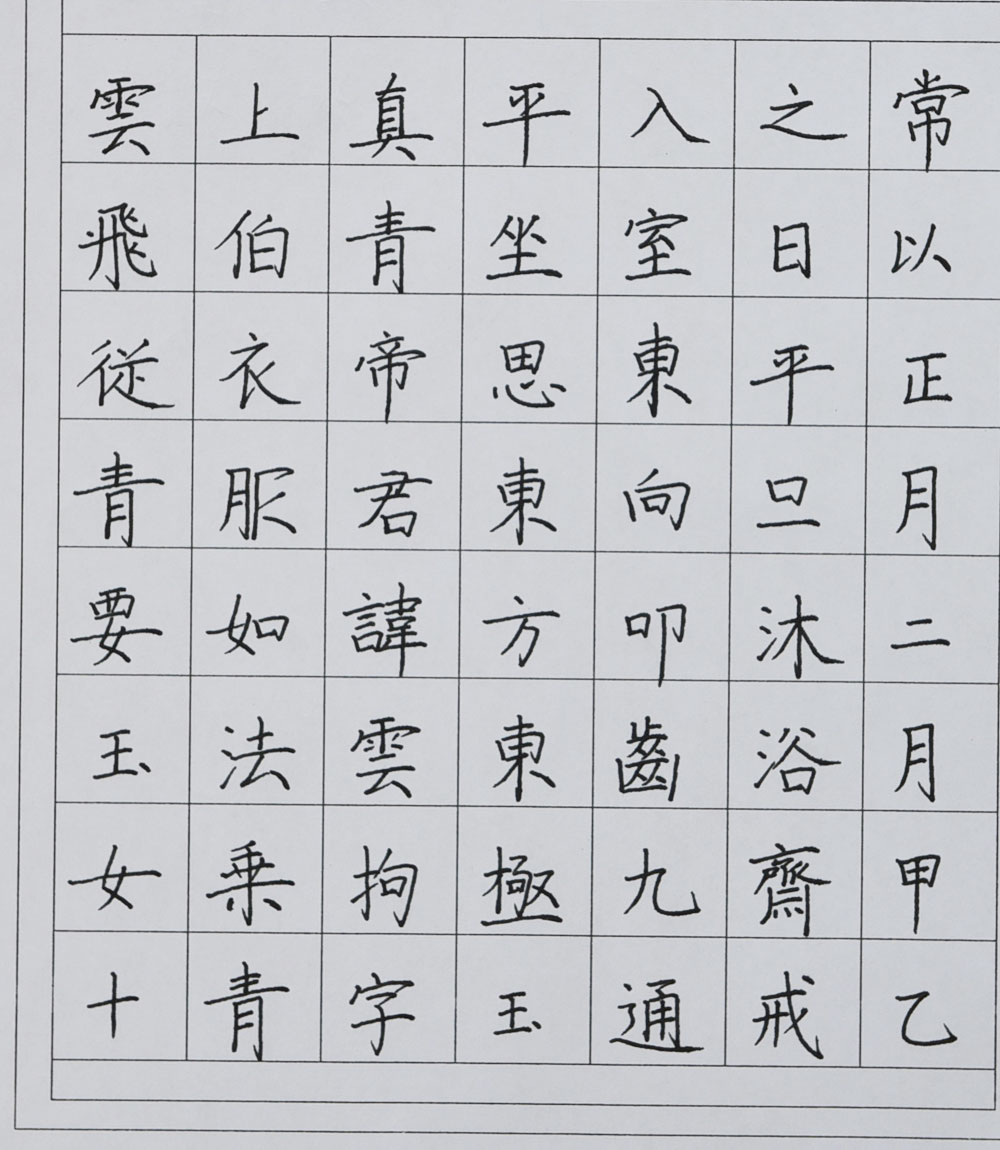 常以正月二月甲乙
之日平旦沐浴齋戒
入室東向叩齒九通
平坐思東方東極玉
真青帝君諱雲拘字
上伯衣服如法乗青
雲飛從青要玉女十